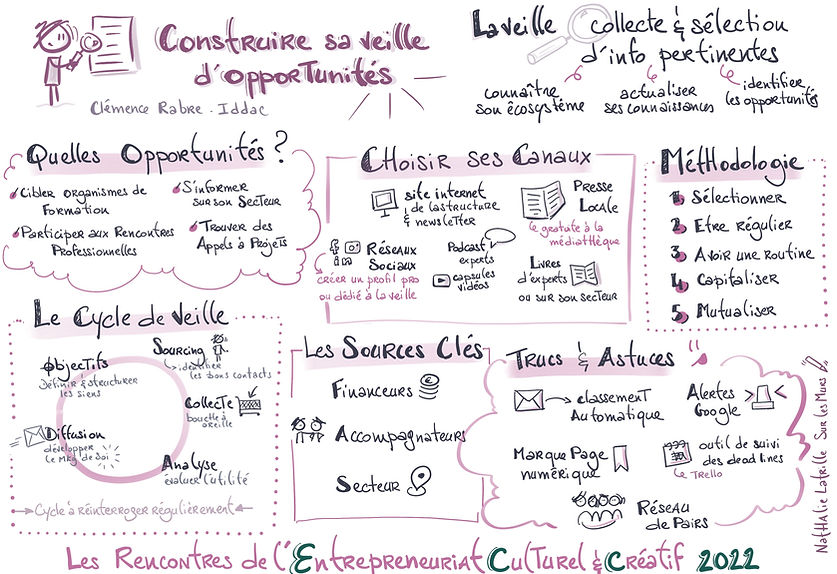 Construire sa veille
d'opportunités
Clémence Rabre . Iddac
La veille collecte & sélection
d'info pertinentes
connaître
son écosystème
actualiser
ses connaissances
identifier
les opportunités
Quelles Opportunités ?
Cibler organismes de
Formation
Participer aux Rencontres
Professionnelles
S'informer
sur son Secteur
Trouver des
Appels à Projets
Choisir ses Canaux
site internet
de la structure
& newsletter
Presse
Locale
gratuite à la
médiathèque
Réseaux
Sociaux
créer un profil pro
ou dédié à la veille
Podcast
experts
capsules
vidéos
Livres
d'experts
ou sur son secteur
Méthodologie
1 Sélectionner
2 Etre régulier
3 Avoir une routine
4 Capitaliser
5 Mutualiser
Le Cycle de Veille
Objectifs
Définir & structurer
les siens
Sourcing
identifier
les bons contacts
Collecte
bouche à
oreille
Analyse
évaluer l'utilité
Diffusion
développer
le Mkg de Soi
Cycle à réinterroger régulièrement
Les Sources Clés
Financeurs
Accompagnateurs
Secteur
Trucs & Astuces
classement
Automatique
Alertes
Google
Marque Page
numérique
outil de suivi
des dead lines
Trello
Réseau
de Pairs
Nathalie Lafrille Sur les Murs
Les Rencontres de l'Entrepreneuriat Culturel & Créatif 2022